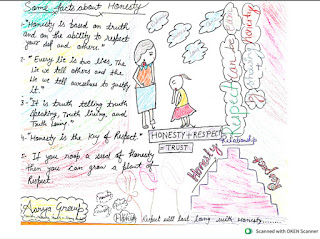 Some facts about Honesty
1- "Honesty is based on truth
and on the ability to respect
your self and others."
2- "Every lie is two lies, The
lie we tell others and the
lie we tell ourselves to justify
it."
3- "It is truth telling, truth
speaking, Truth living, and
Truth loving."
4- "Honesty is the key of Respect."
5- If you reap a seed of Honesty
then you can grow a plant of
Respect.
HONESTY + RESPECT
= TRUST
Relationship
Honesty
Respect
Honesty
Respect will last long with Honesty......
Scanned with OKEN Scanner